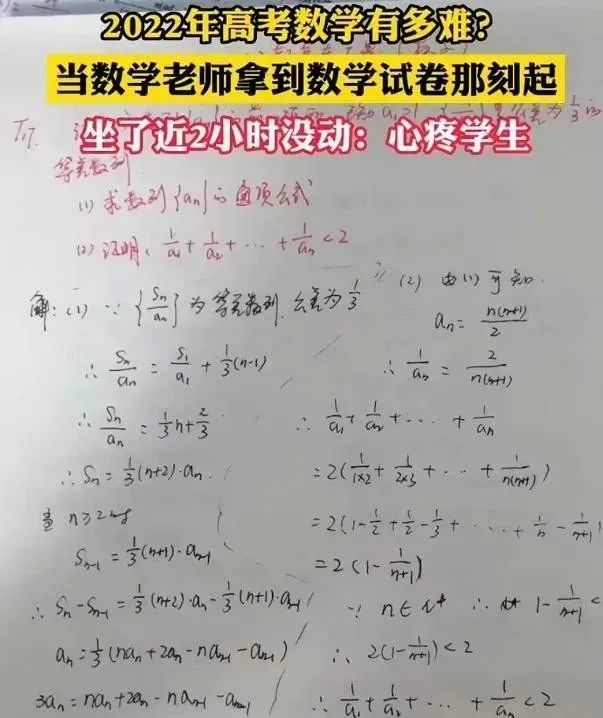 2022年高考数学有多难?
当数学老师拿到数学试卷那刻起
坐了近2小时没动：心疼学生
T17.
公差为 1/3 的
等差数列
(1) 求数列{an}的通项公式
(2) 证明: 1/a1 + 1/a2 + … + 1/an < 2
解: (1) ∵ {Sn/an} 为等差数列. 公差为 1/3
∴ Sn/an = S1/a1 + 1/3(n-1)
∴ Sn/an = 1/3 n + 2/3
∴ Sn = 1/3(n+2)·an.
当 n≥2时
Sn-1 = 1/3(n+1)·an-1
∴ Sn - Sn-1 = 1/3(n+2)·an - 1/3(n+1)·an-1
an = 1/3(nan + 2an - nan-1 - an-1)
3an = nan + 2an - nan-1 - an-1
(2) 由(1)可知.
an = n(n+1)/2
∴ 1/an = 2/n(n+1)
∴ 1/a1 + 1/a2 + … + 1/an
= 2(1/1×2 + 1/2×3 + … + 1/n(n+1))
= 2(1 - 1/2 + 1/2 - 1/3 + … + 1/n - 1/n+1)
= 2(1 - 1/n+1)
∵ n∈N* ∴ 1 - 1/n+1 <
∴ 2(1 - 1/n+1) < 2
∴ 1/a1 + 1/a2 + … + 1/an < 2